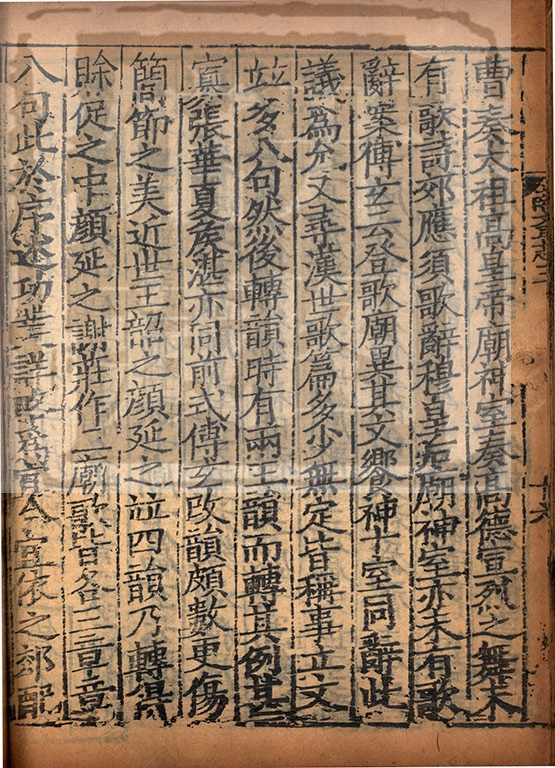 曹奏太祖高皇帝廟神室奏高德宣烈之舞未
有歌詩郊應須歌辭穆皇后廟神室亦未有歌
辭案傅玄云登歌廟異其文饗神十室同辭此
議爲允又尋漢世歌篇多少無定皆稱事立文
並多八句然後轉韻時有兩三韻而轉其例甚
寡張華夏侯湛亦同前式傅玄改韻頗數更傷
簡節之美近世王韶之顏延之並四韻乃轉得
賒促之中顏延之謝莊作三廟歌皆各三章章
八句此於序述功業詳略爲宜今宜依之郊配